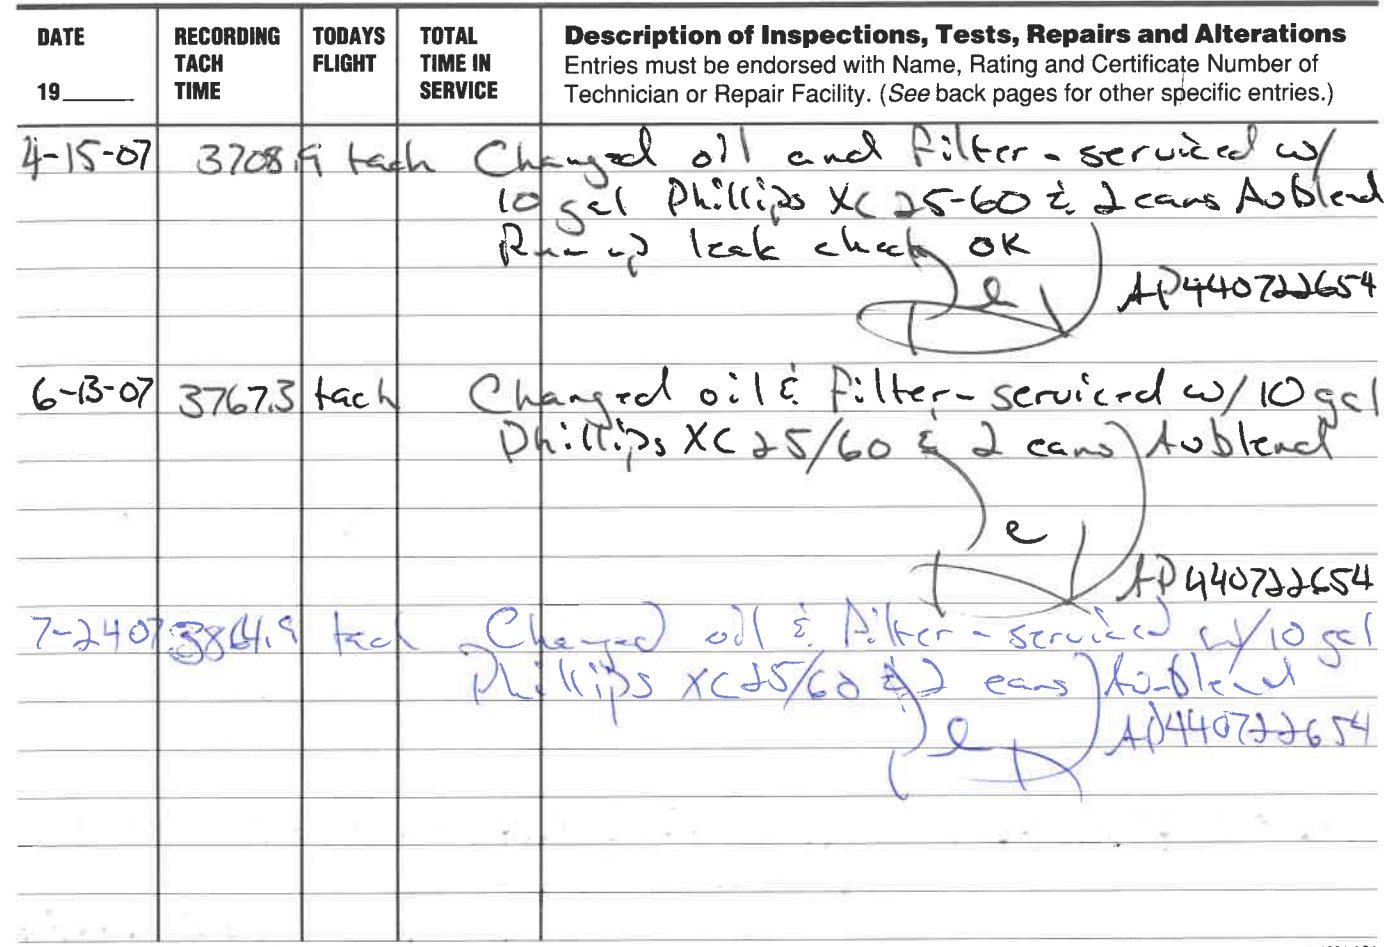 DATE RECORDING TODAYS TOTAL Description of Inspections, Tests, Repairs and Alterations
TACH FLIGHT TIME IN Entries must be endorsed with Name, Rating and Certificate Number of
19____ TIME SERVICE Technician or Repair Facility. (See back pages for other specific entries.)
4-15-07 3708.9 tach Changed oil and filter - serviced w/
10 gal Phillips XC 25-60 & 2 cans Avblend
Run up leak check OK
AP440722654
6-13-07 3767.3 tach Changed oil & filter - serviced w/ 10 gal
Phillips XC 25/60 & 2 cans Avblend
AP440722654
7-2407 tach Changed oil & filter - serviced w/ 10 gal
Phillips XC25/60 & 2 cans Av-blend
AP440722654